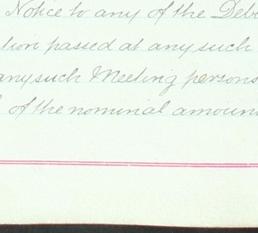 Notice to any of the Deb
tion passed at any such
any such Meeting persons
of the nominal amoun